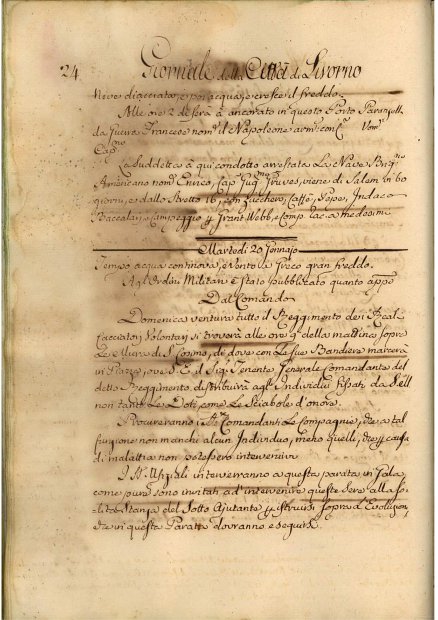 24. Giornale della Città di Livorno
Neve diacciata, e poi acqua, e cresce il freddo.
Alle ore 2 di sera à ancorato in questo Porto
da Guerra Francese nom.to il Napoleone arm.
Cap.no
La Suddetta à qui condotto arrestata La Nave Brig.no
Americano nom.to Enrico, Cap.no viene di Salem in 60
giorni, e dallo Stretto 16, con Zucchero, Caffè, Pepe, Indaco
Baccalari, e Campeggio, e Comp.
Martedì 20 Gennajo
Tempo acqua continova, e Vento a Greco gran freddo.
Agl'Ordini Militari è stato pubblicato quanto app.e
Dal Comando
Domenica ventura tutto il Reggimento dei Real
Cacciatori Volontarj si troverà alle ore 9 della mattina sopra
Le Mura di S. Cosimo, di dove con Le sue Bandiere marcerà
in Piazza, ove S. E. il Sig. Tenente Generale Comandante del
detto Reggimento distribuirà agl'Individui fissati da S. E.
non tanto Le Doti, come Le Sciabole d'onore.
Procureranno i SS.ri Comandanti Le Compagnie, che a tal
funzione non manchi alcun Individuo, meno quelli, che p. causa
di malattia non potessero intervenirvi.
I SS. Uffiziali interverranno a questa parata in Gala
come pure sono invitati ad intervenire queste Sere alla so-
lita Stanza del Sotto Ajutante p. istruirsi sopra l'Evoluzioni
che in questa Parata dovranno eseguirsi.